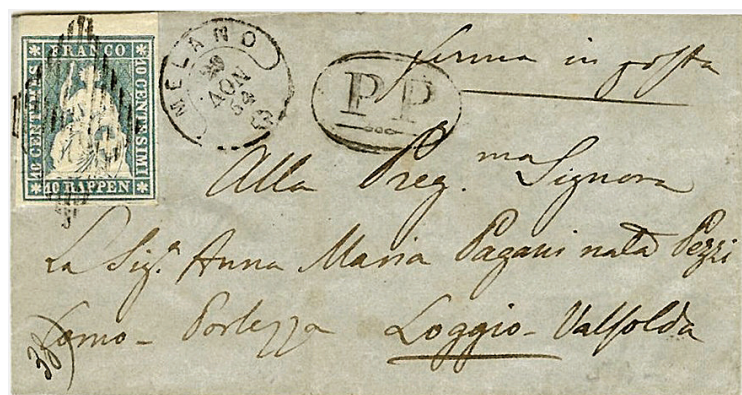 FRANCO
10 CENTIMES
10 CENTESIMI
10 RAPPEN
MELANO
29
NOV
54
P.P.
ferma in posta
Alla Preg.ma Signora
La Sig.a Anna Maria Pagani nata Pezzi
Como - Porlezza Loggio - Valsolda